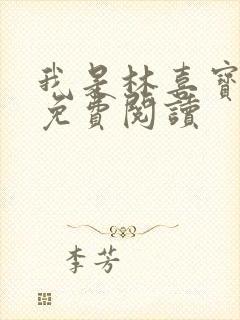 我是林喜寶
免費閱讀
李芳